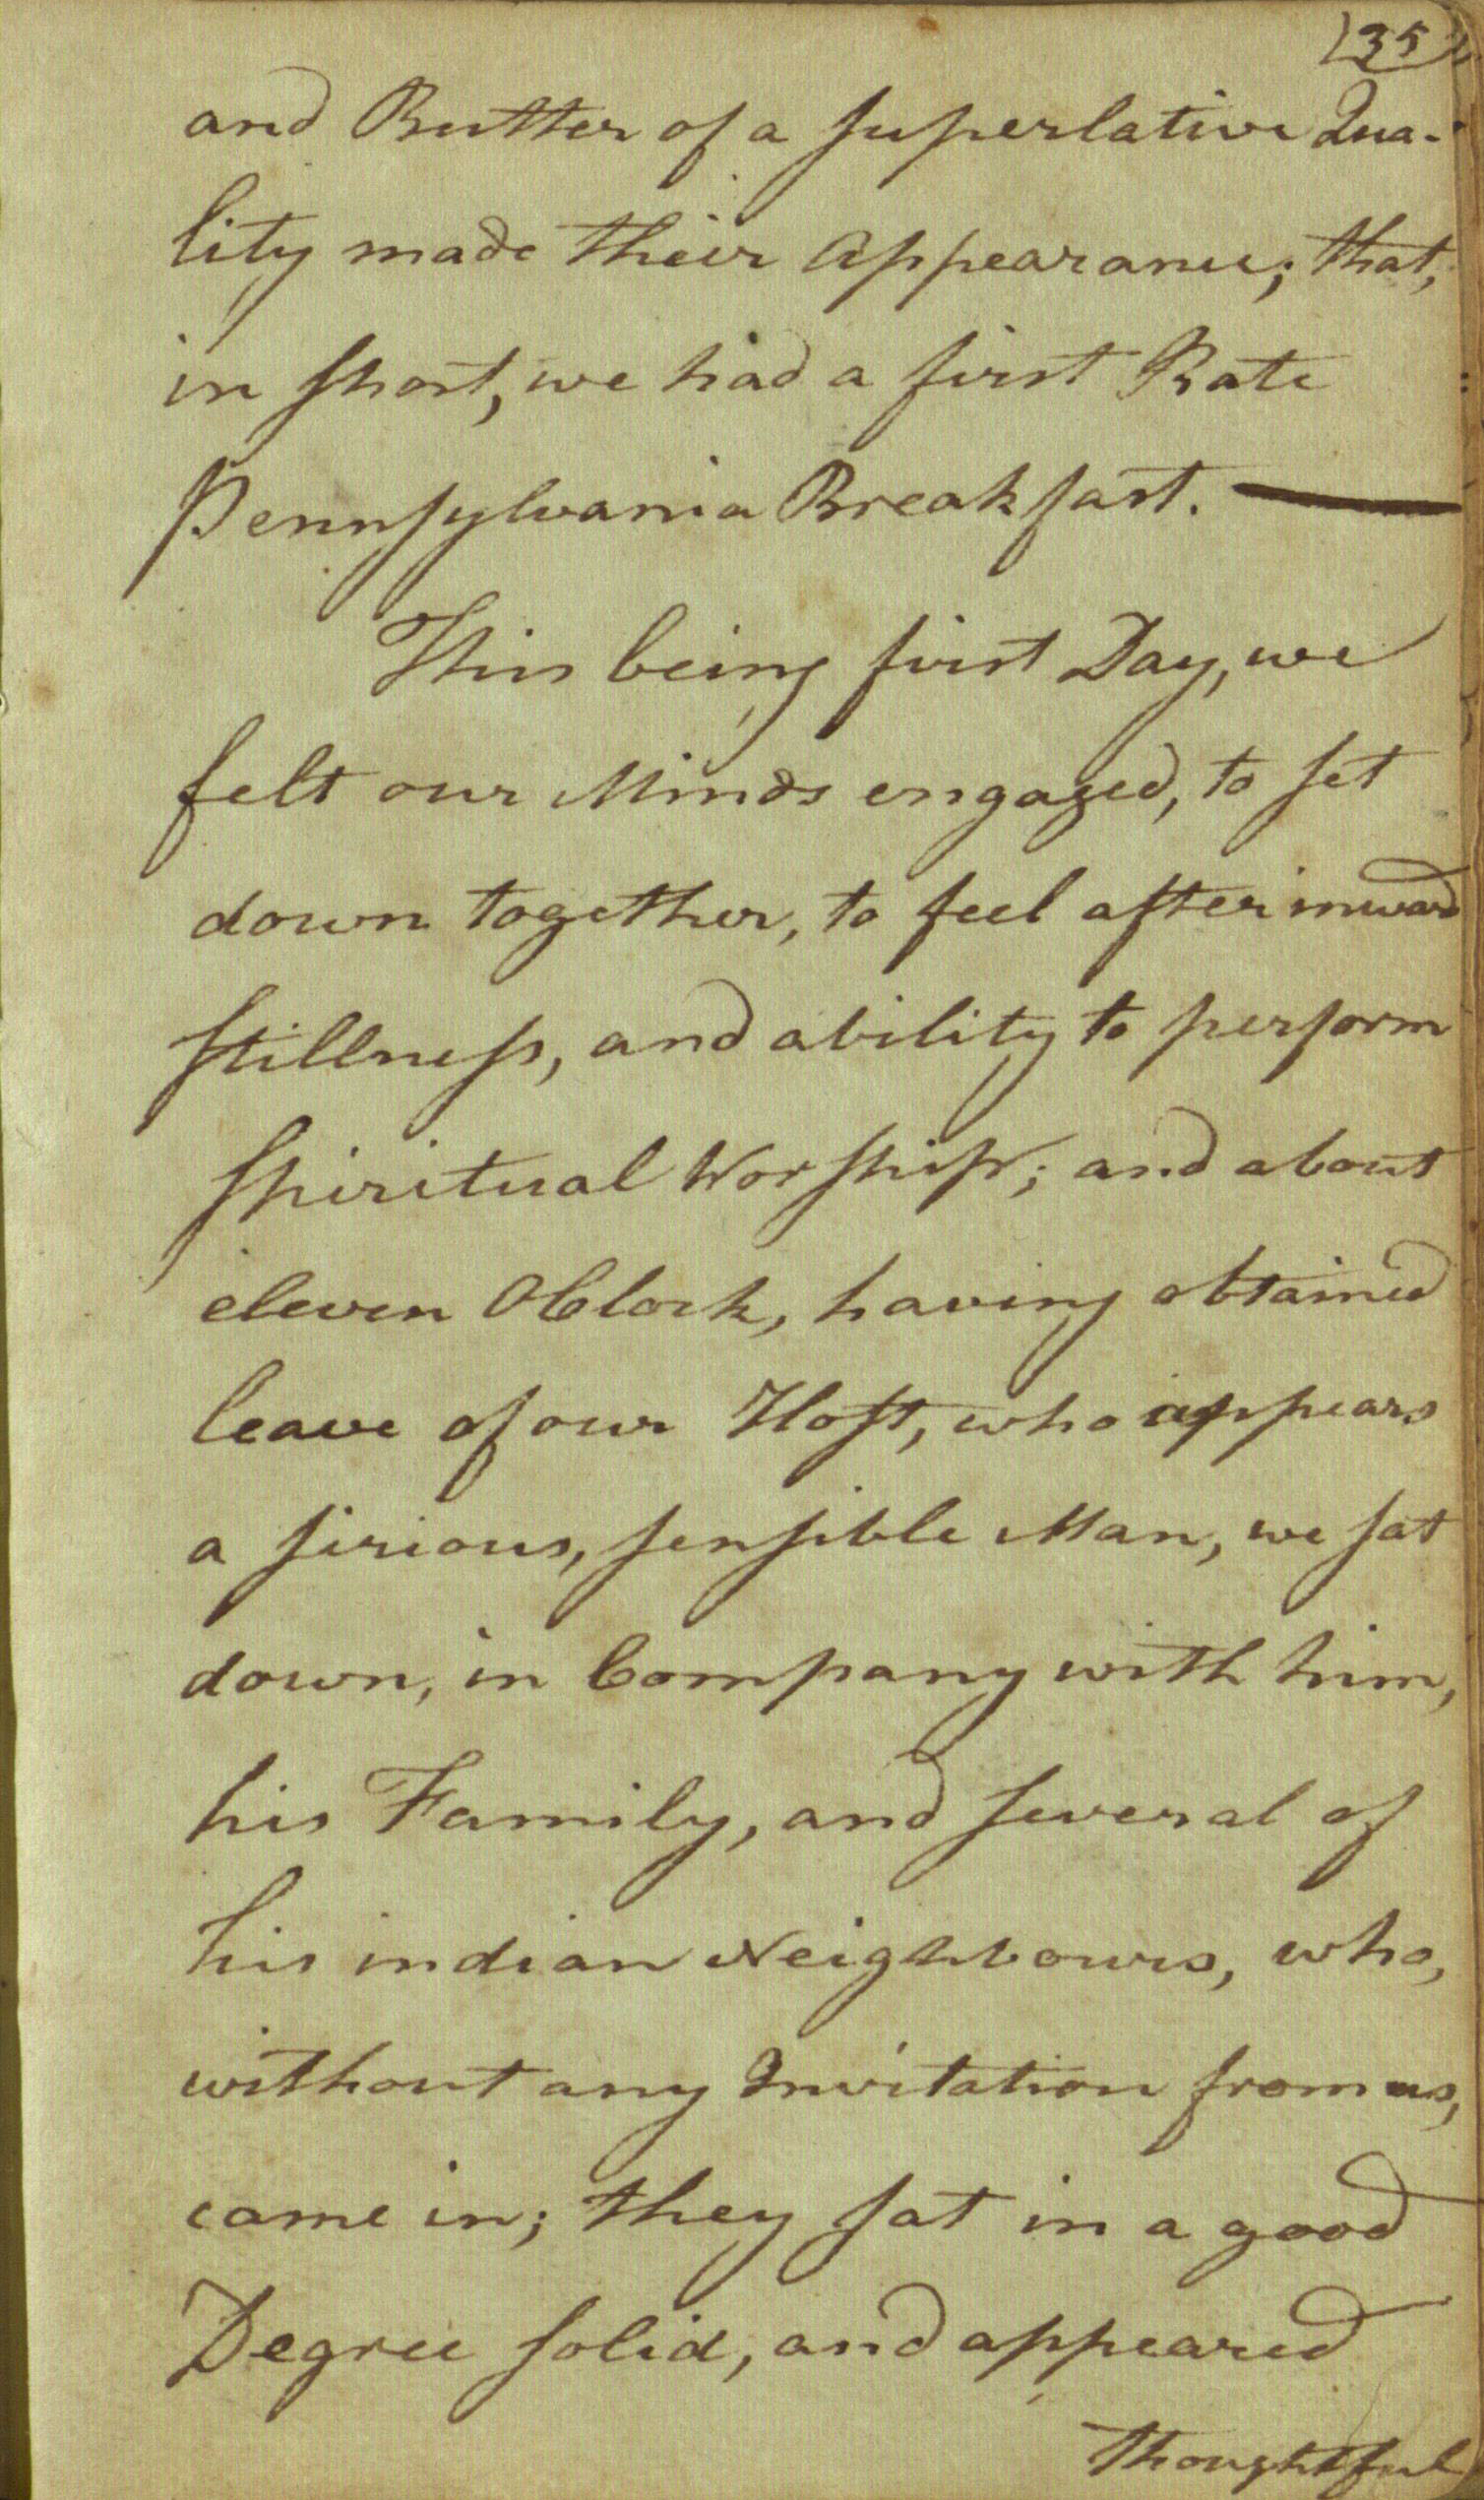 135
and Butter of a superlative Qua-
lity made their Appearance; that,
in short, we had a first Rate
Pennsylvania Breakfast. —
This being first Day, we
felt our Minds engaged, to set
down together, to feel after inward
stillness, and ability to perform
spiritual Worship; and about
eleven OClock, having obtained
leave of our Host, who appears
a sirious, sensible Man, we sat
down, in Company with him,
his Family, and several of
his indian Neighbours, who,
without any Invitation from us,
came in; they sat in a good
Degree solid, and appeared
thoughtful